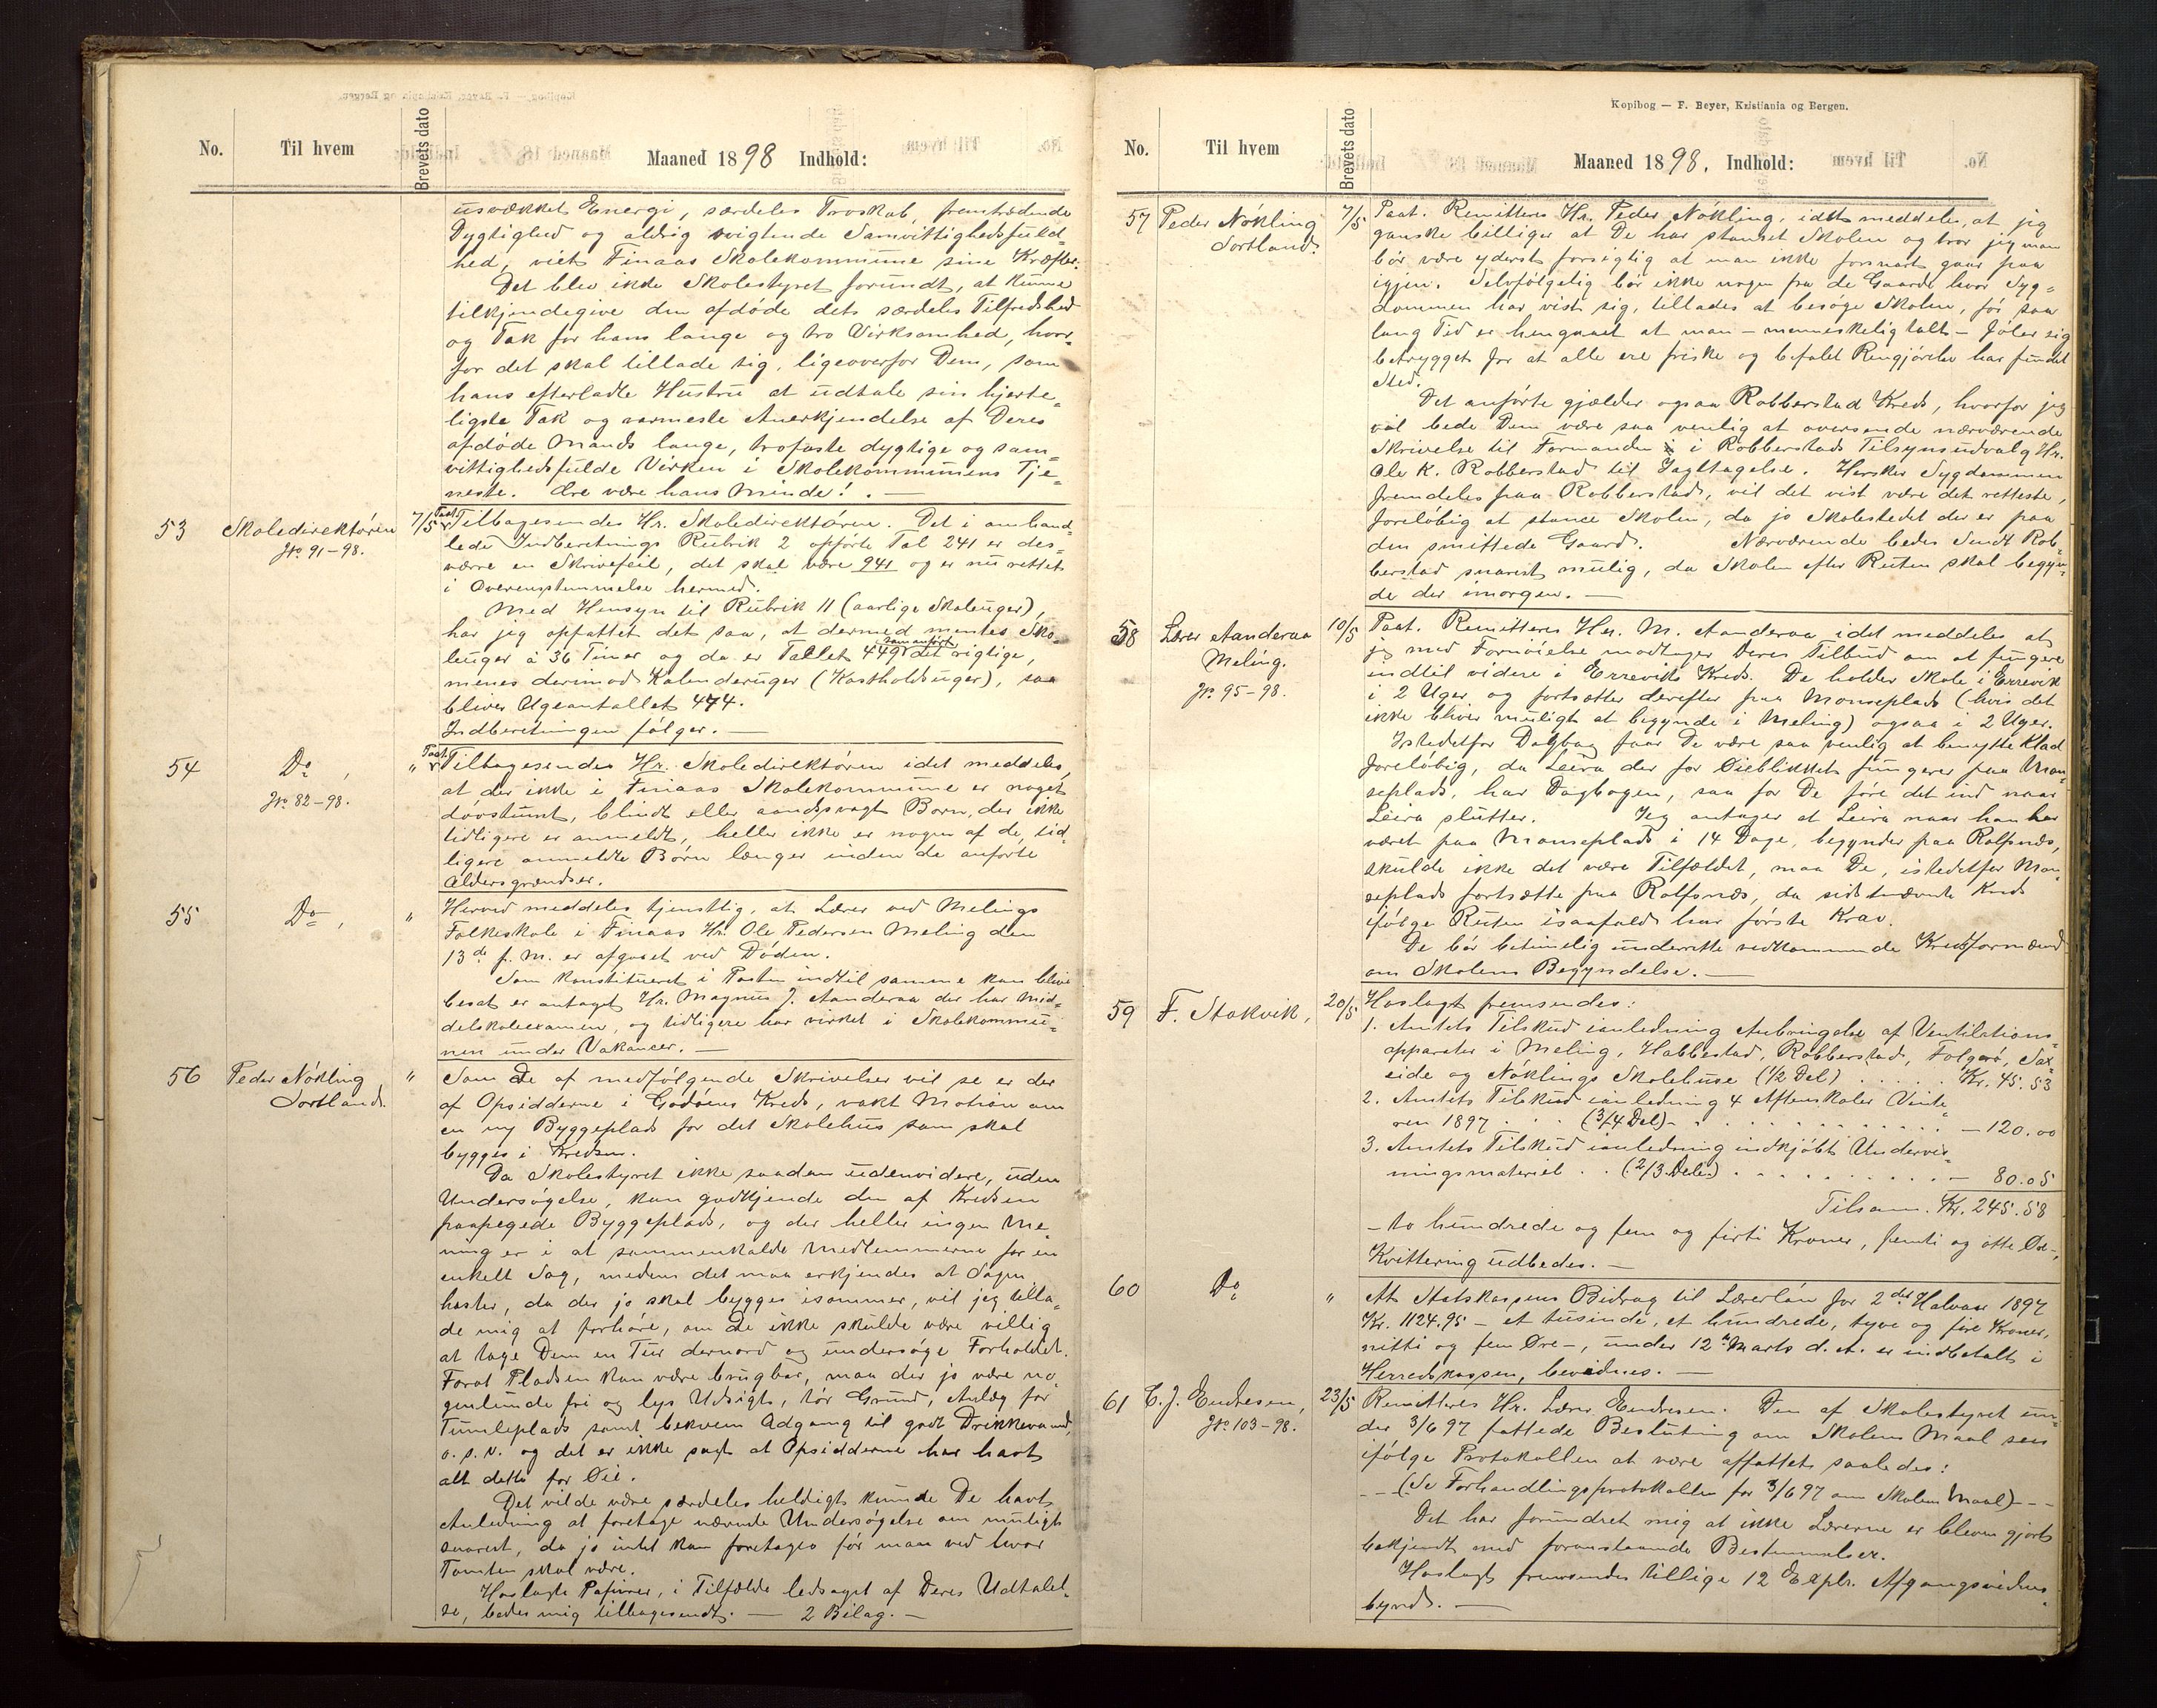 No. Til hvem Brevets dato Maaned 1898 Indhold:
usvækket Energi, særdeles Troskab, fremtrædende
Dygtighed og aldrig svigtende Samvittighedsfuld-
hed, viet Finaas Skolekommune sine Kræfter.
Det blev ikke Skolestyret forundt, at kunne
tilkjendegive den afdøde dets særdeles Tilfredshed
og Tak for hans lange og tro Virksomhed, hvor-
for det skal tillade sig, ligeoverfor Dem, som
hans efterladte Hustru at udtale sin hjerte-
ligste Tak og varmeste Anerkjendelse af Deres
afdøde Mands lange, trofaste dygtige og sam-
vittighedsfulde Virken i Skolekommunens Tje-
neste. Ære være hans Minde! . —
53 Skoledirektøren 7/5 Paat. Tilbagesendes Hr. Skoledirektøren. Det i omhand-
Jr. 91-98. lede Indberetnings Rubrik 2 opførte Tal 241 er des-
værre en Skrivefeil, det skal være 941 og er nu rettet
i Overensstemmelse hermed.
Med Hensyn til Rubrik 11 (aarlige Skoleuger),
har jeg opfattet det saa, at dermed mentes Sko-
leuger à 36 Timer og da er Tallet 449 som anført det rigtige,
menes dermod Kalenderuger (Kostholdsuger), saa
bliver Ugeantallet 474.
Indberetningen følger. —
54 Do , " Paat. Tilbagesendes Hr. Skoledirektøren idet meddeles,
Jr. 82-98. at der ikke i Finaas Skolekommune er noget
døvstumt, blindt eller aandssvagt Barn, der ikke
tidligere er anmeldt, heller ikke er nogen af de, tid-
ligere anmeldte Børn længer inden de anførte
Aldersgrændser.
55 Do , " Herved meddeles tjenstlig, at Lærer ved Melings
Folkeskole i Finaas Hr. Ole Pedersen Meling den
13de f. M. er afgaaet ved Døden.
Som konstitueret i Posten indtil samme kan blive
besat er antaget Hr. Magnus J. Aanderaa der har Mid-
delskoleexamen, og tidligere har virket i Skolekommu-
nen under Vakancer. —
56 Peder Nökling " Som De af medfølgende Skrivelser vil se er der
Sortland. af Opsidderne i Godøens Kreds, vakt Motion om
en ny Byggeplads for det Skolehus som skal
bygges i Kredsen.
Da Skolestyret ikke saadan udenvidere, uden
Undersøgelse, kan godkjende den af Kredsen
paapegede Byggeplads, og der heller ingen Me-
ning er i at sammenkalde Medlemmerne for en
enkelt Sag, medens det maa erkjendes at Sagen
haster, da der jo skal bygges isommer, vil jeg tilla-
de mig at forhøre, om De ikke skulde være villig
at tage Dem en Tur dernord og undersøge Forholdet.
Forat Pladsen kan være brugbar, maa der jo være no-
genlunde fri og lys Udsigt, tør Grund, Anlæg for
Tumleplads samt bekvem Adgang til godt Drikkevand,
o. s. v. og det er ikke sagt at Opsidderne har havt
alt dette for Øie.
Det vilde være særdeles heldigt kunde De havt
Anledning at foretage nævnte Undersøgelse om muligt
snarest, da jo intet kan foretages før man ved hvor
Tomten skal være.
Hoslagte Papirer, i Tilfælde ledsaget af Deres Udtalel-
se, bedes mig tilbagesendt. — 2 Bilag. —
Kopibog — F. Beyer, Kristiania og Bergen.
No. Til hvem Brevets dato Maaned 1898. Indhold:
57 Peder Nökling 7/5 Paat. Remitteres Hr. Peder Nökling, idet meddeles, at jeg
Sortland. ganske billiger at De har stanset Skolen og tror jeg man
bør være yderst forsigtig at man ikke forsnart gaar paa
igjen. Selvfølgelig bør ikke nogen fra de Gaarde hvor Syg-
dommen har vist sig, tillades at besøge Skolen, før saa
lang Tid er hengaaet at man - menneskelig talt - føler sig
betrygget for at alle ere friske og befalet Rengjørelse har fundet
Sted.
Det anførte gjælder ogsaa Robberstad Kreds, hvorfor jeg
vil bede Dem være saa venlig at oversende nærværende
Skrivelse til Formanden i Robberstads Tilsynsudvalg Hr.
Ole K. Robberstad til Iagttagelse. Hersker Sygdommen
fremdeles paa Robberstad, vil det vist være det retteste,
foreløbig at stanse Skolen, da jo Skolestedet der er paa
den smittede Gaard. Nærværende bedes sendt Rob-
berstad snarest mulig, da Skolen efter Ruten skal begyn-
de der imorgen. —
58 Lærer Aanderaa 10/5 Paat. Remitteres Hr. M. Aanderaa idet meddeles at
Meling. jeg med Fornøielse modtager Deres Tilbud om at fungere
Jr. 95-98. indtil videre i Erreviks Kreds. De holder Skole i Errevik
i 2 Uger og fortsætter derefter paa Monseplads (hvis det
ikke bliver muligt at begynde i Meling) ogsaa i 2 Uger.
Istedetfor Dagbog faar De være saa venlig at benytte Klad
foreløbig, da Leira der for Øieblikket fungerer paa Mon-
seplads, har Dagbogen, saa får De føre det ind naar
Leira slutter. Jeg antager at Leira naar han har
været paa Monseplads i 14 Dage, begynder paa Rolfsnes,
skulde ikke det være Tilfældet, maa De, istedetfor Mon-
seplads fortsætte paa Rolfsnæs, da sidstnævnte Kreds
ifølge Ruten isaafald har første Krav.
De bør betimelig underrette vedkommende Kredsformænd
om Skolens Begyndelse. —
59 F. Stokvik, 20/5 Hoslagt fremsendes:
1. Amtets Tilskud ianledning Anbringelse af Ventilations-
apparater i Meling, Habbestad, Robberstad, Folgerø, Sax-
eide og Nöklings Skolehuse (1/2 Del) . . . . . Kr. 45.53
2. Amtets Tilskud ianledning 4 Aftenskoler Vinte-
ren 1897 . . . (3/4 Del) . . . . . . . . . — 120.00
3. Amtets Tilskud ianledning indkjøbt Undervis-
ningsmateriel . . (2/3 Dele) . . . . . . . . — 80.05
Tilsam. Kr. 245.58
- to hundrede og fem og firti Kroner, femti og otte Øre -,
Kvittering udbedes. —
60 Do " At Statskassens Bidrag til Lærerløn for 2det Halvaar 1897
Kr. 1124.95 - et tusinde, et hundrede, tyve og fire Kroner,
nitti og fem Øre -, under 12te Marts d. A. er indbetalt i
Herredskassen, bevidnes. —
61 C. J. Endresen, 23/5 Remitteres Hr. Lærer Endresen. Den af Skolestyret un-
Jr. 103-98. der 3/6 97 fattede Beslutning om Skolens Maal sees
ifølge Protokollen at være affattet saaledes:
- - (Se Forhandlingsprotokollen for 3/6 97 om Skolens Maal) - -
Det har forundret mig at ikke Lærerne er bleven gjort
bekjendt med foranstaaende Bestemmelser.
Hoslagt fremsendes tillige 12 Explr. Afgangsvidnes-
byrd. —